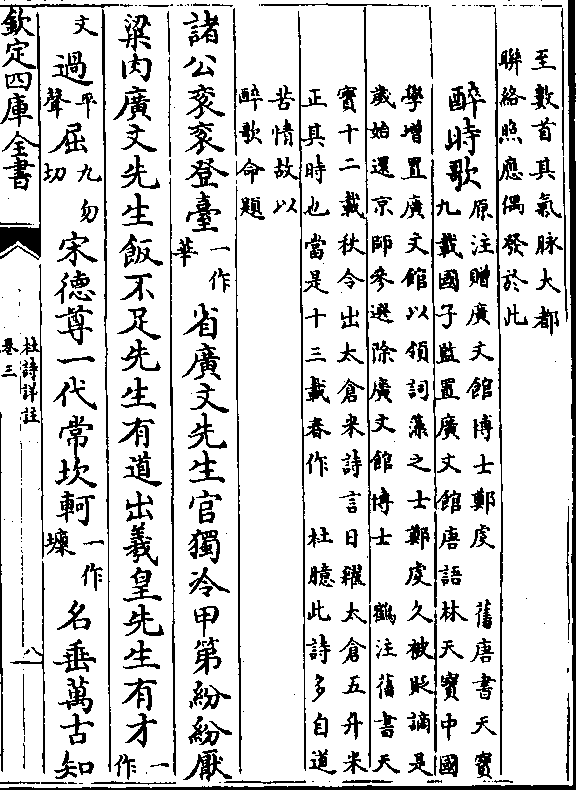 至數首其氣脉大都
聯絡照應偶發於此
醉時歌
原注贈廣文館博士鄭虔 舊唐書天寳
九載國子監置廣文館唐語林天寳中國
學增置廣文館以領詞藻之士鄭虔久被貶謫是
歲始還京師參選除廣文館博士 鶴注舊書天
寳十二載秋令出太倉米詩言日糴太倉五升米
正其時也當是十三載春作 杜臆此詩多自道
苦情故以
醉歌命題
諸公衮衮登臺一作華省廣文先生官獨冷甲第紛紛厭
粱肉廣文先生飯不足先生有道出羲皇先生有才一作
文過平聲屈九勿切宋德尊一代常坎軻一作壈名垂萬古知
欽定四庫全書
杜詩詳註
卷三
八